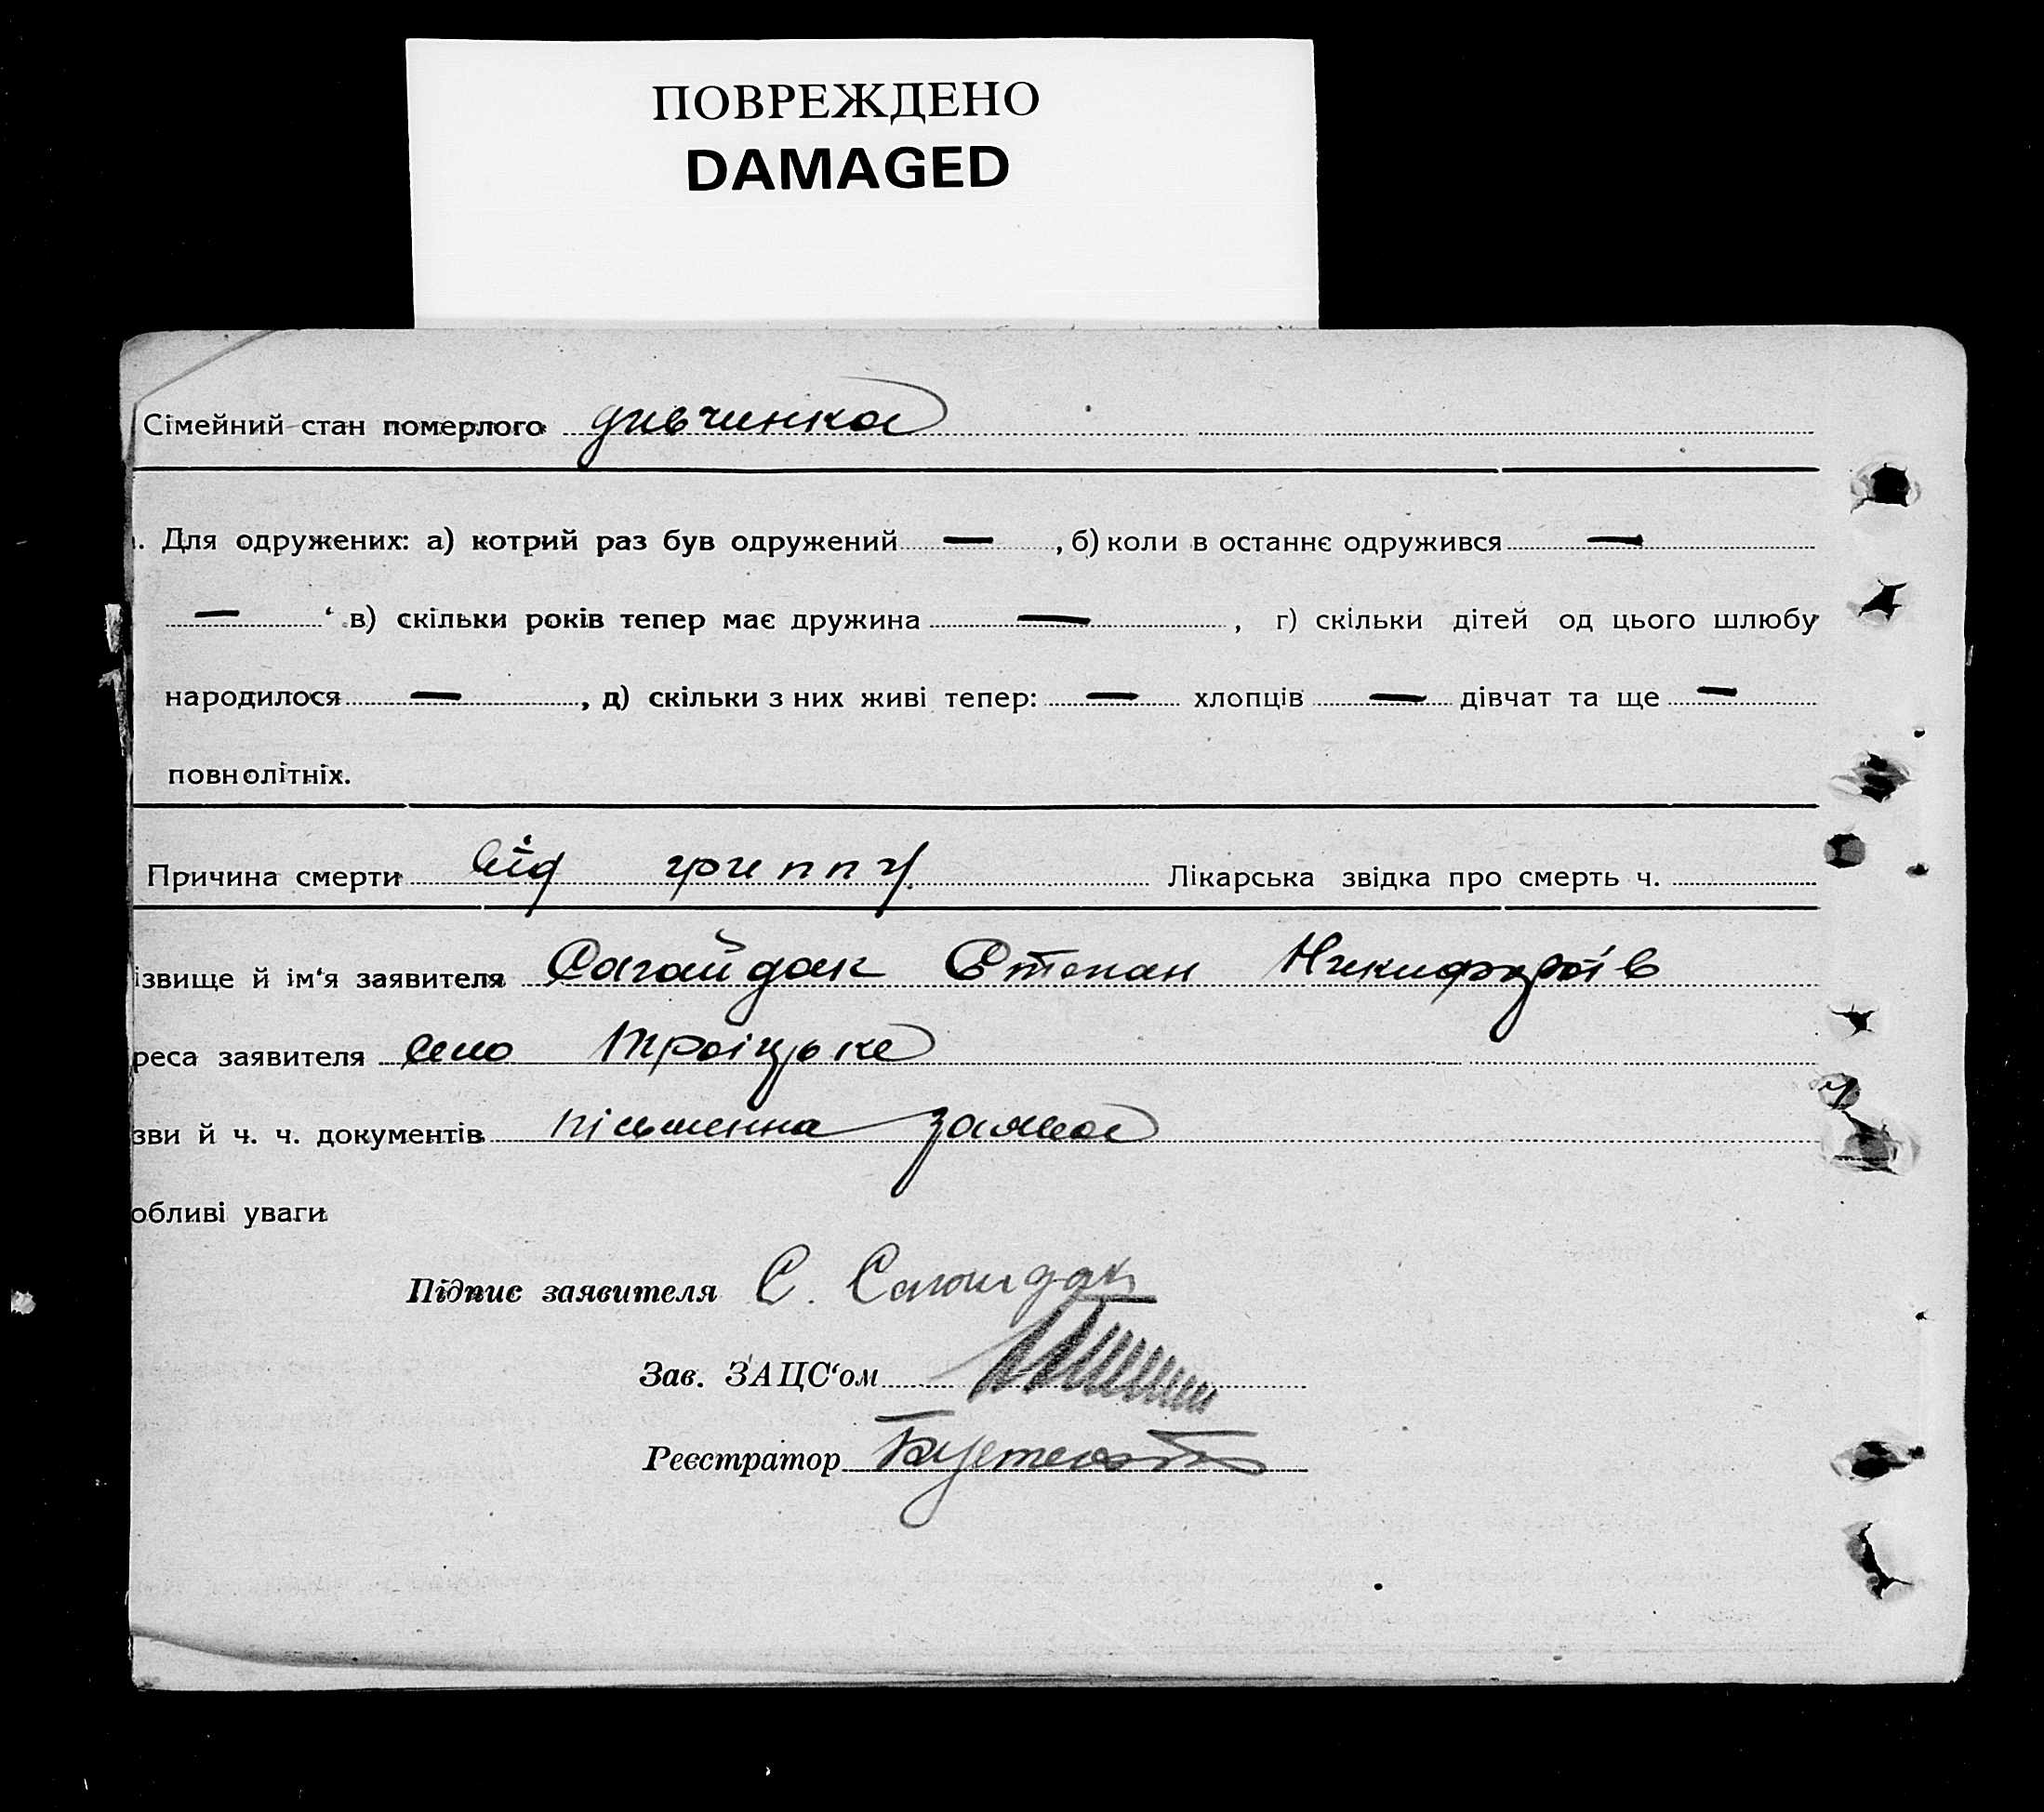 ПОВРЕЖДЕНО
DAMAGED
Сімейний стан померлого дивчинка
. Для одружених: а) котрий раз був одружений — , б) коли в останнє одружився —
— ‘ в) скільки років тепер має дружина — , г) скільки дітей од цього шлюбу
народилося — , д) скільки з них живі тепер: — хлопців — дівчат та ще —
повнолітніх.
Причина смерти від гриппу. Лікарська звідка про смерть ч.
ізвище й ім‘я заявителя Сагайдак Степан Никифорів
реса заявителя село Троіцьке
зви й ч. ч. документів пісьменна заява
обливі уваги
Підпис заявителя С. Сагайдак
Зав. ЗАЦС‘ом
Реєстратор